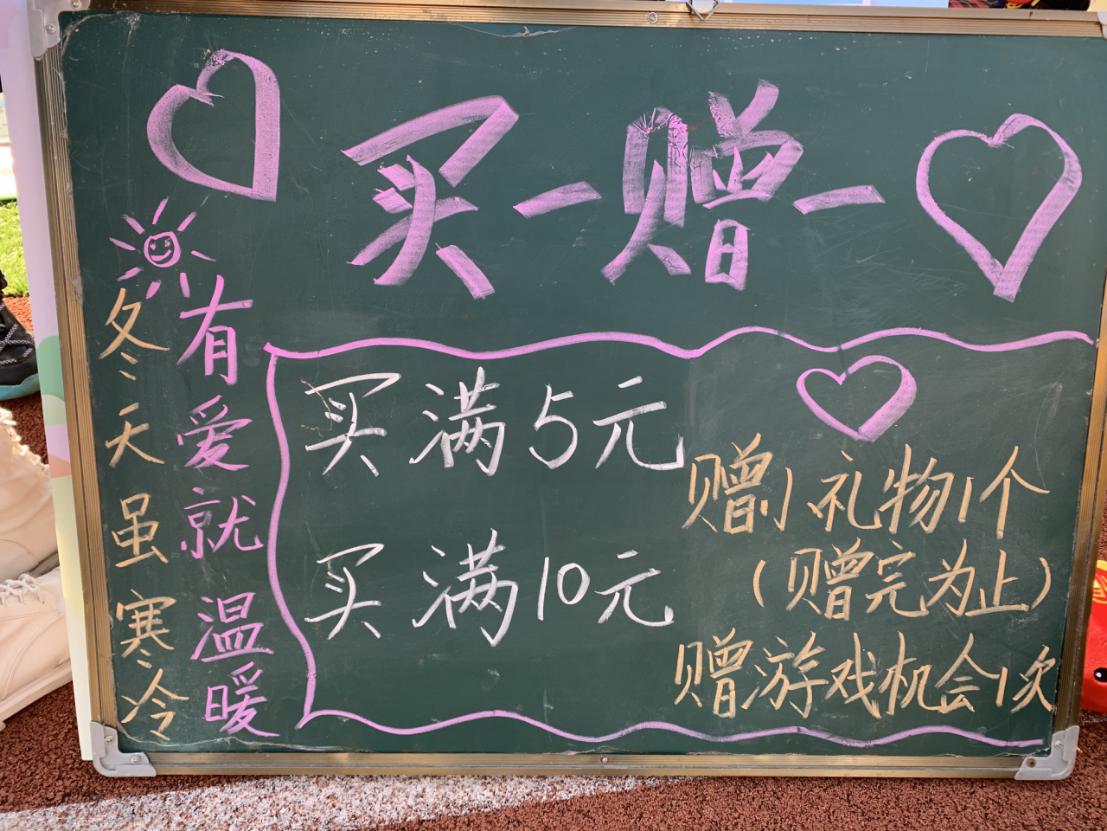 买一赠一
冬天虽寒冷
有爱就温暖
买满5元
赠小礼物1个
(赠完为止)
买满10元
赠游戏机会1次